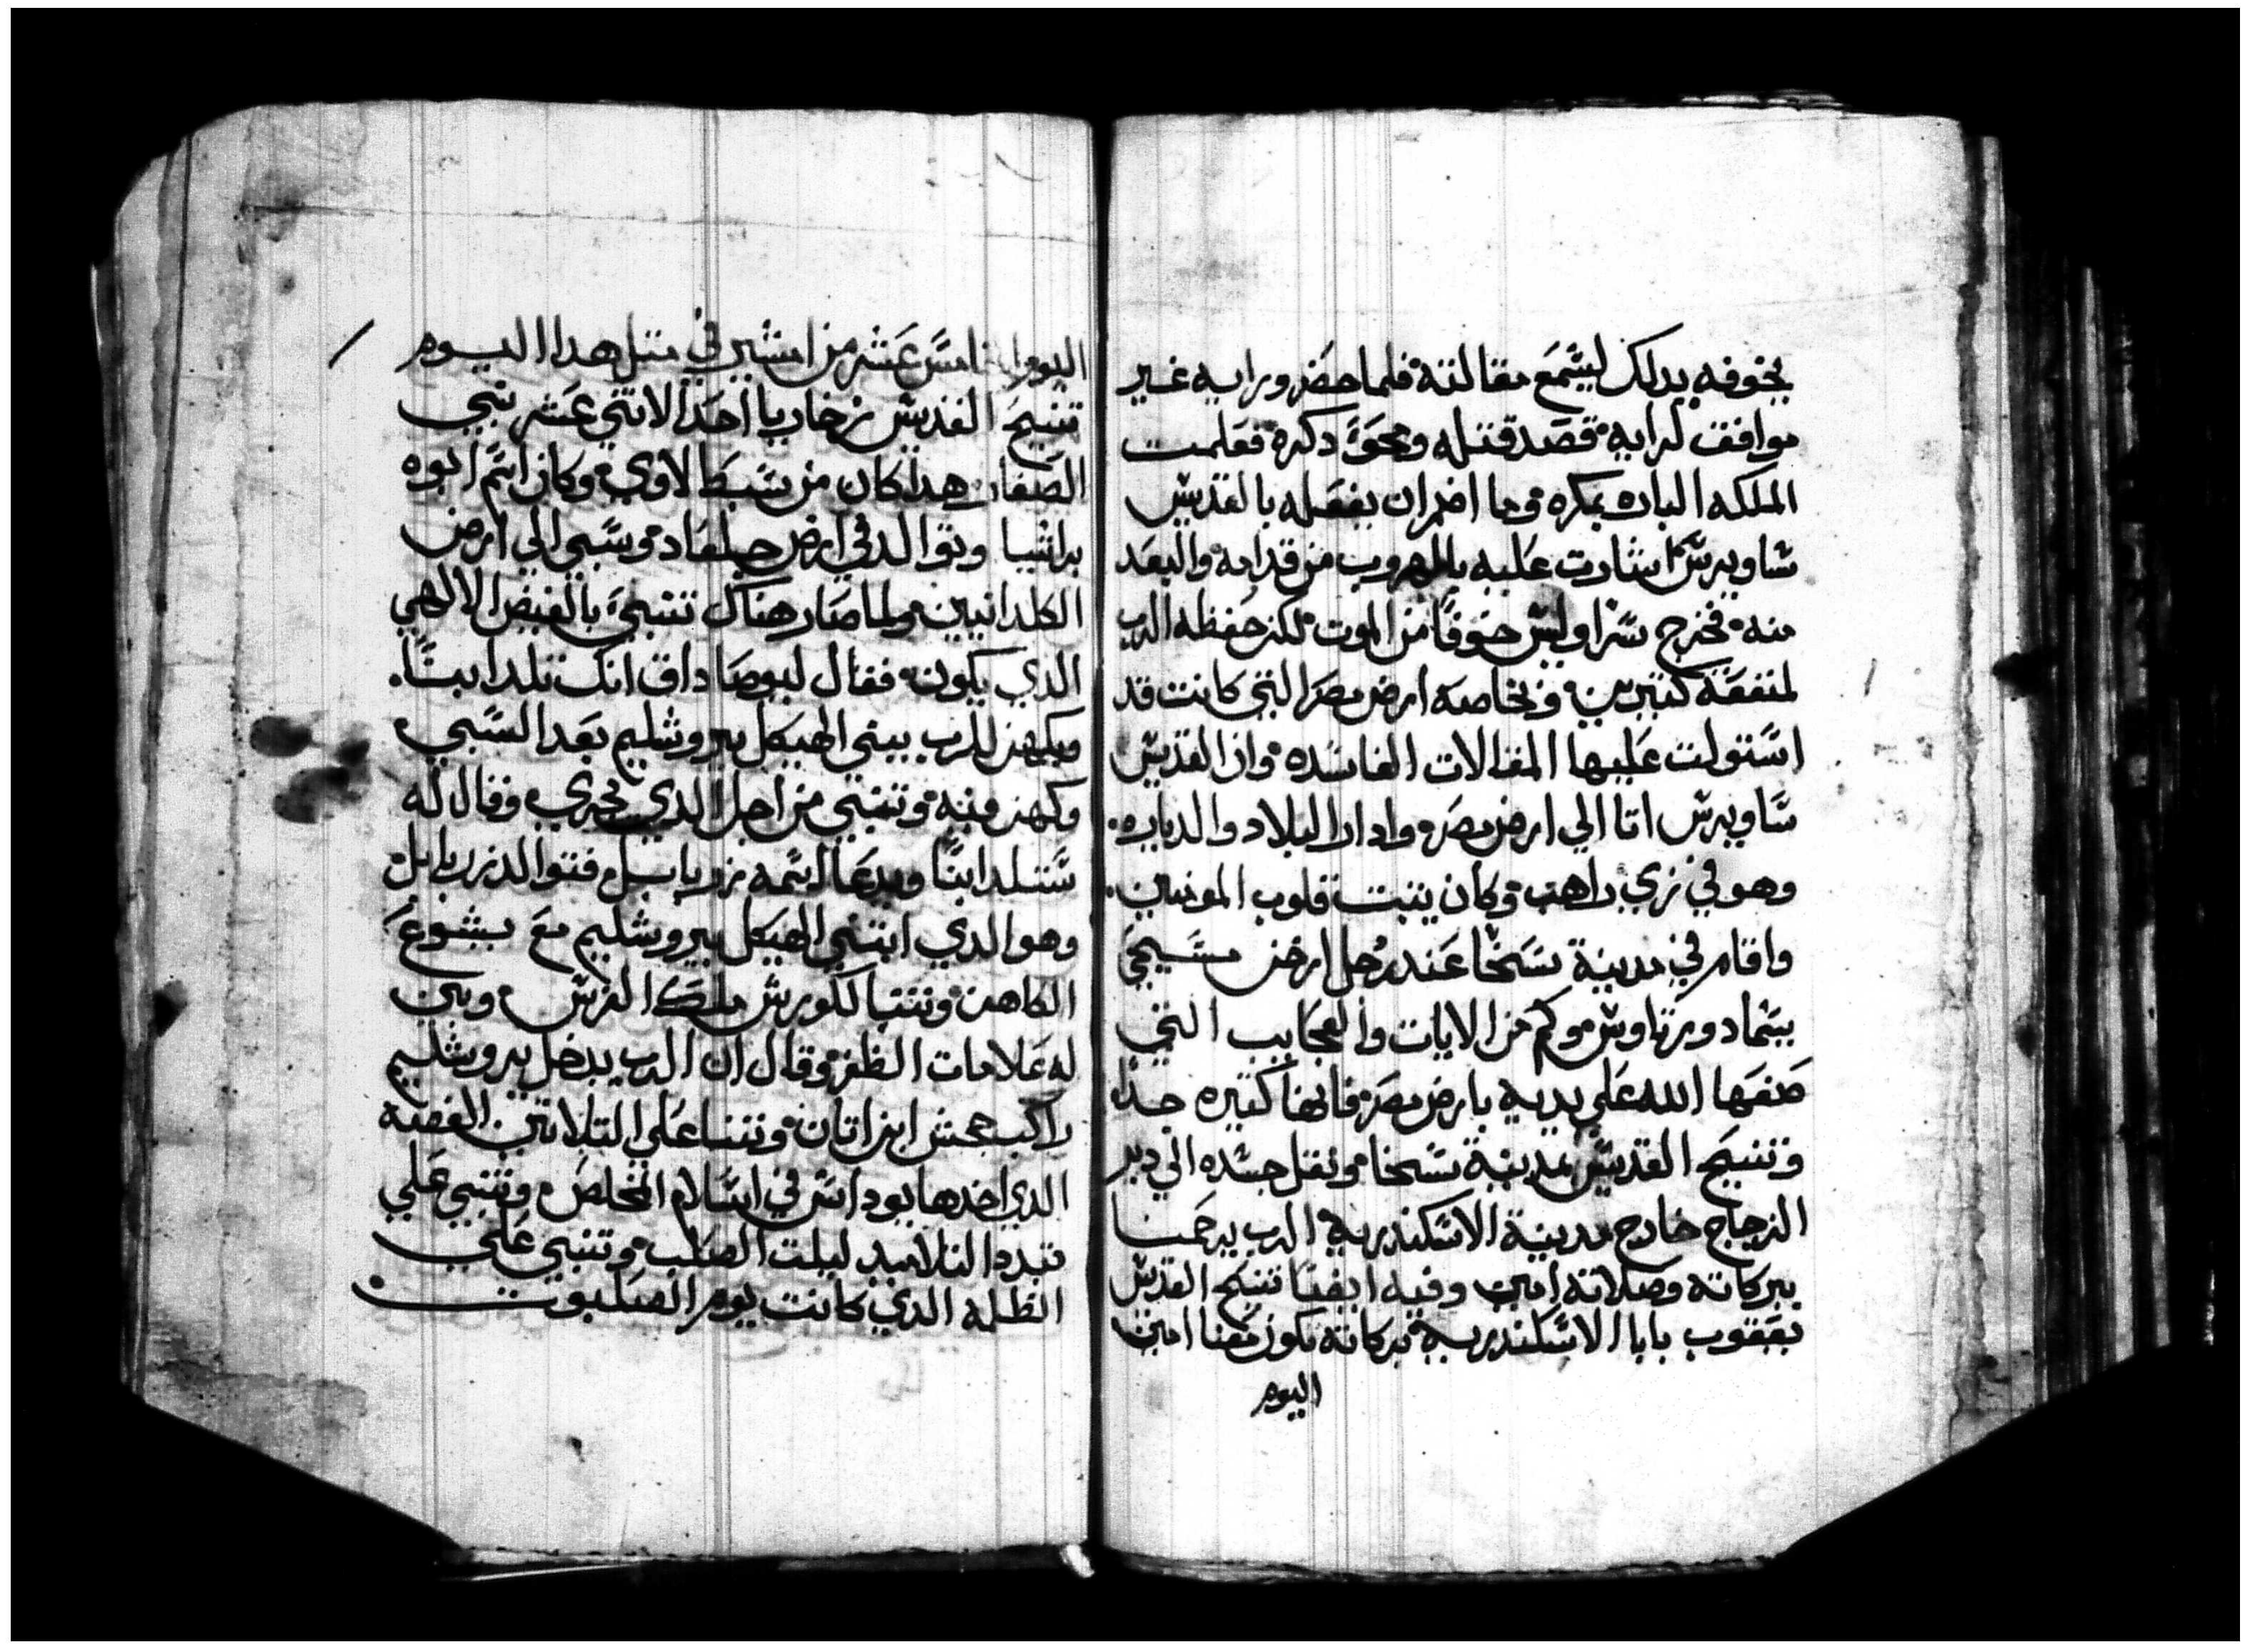 يخوفه بدلك ليسمع مقالته فلما حضر ورايه غير
موافق لرايه قصد قتله ومحو دكره فعلمت
الملكه الباره بمكره وما اضمر ان يفعله بالقديس
ساويرس اشارت عليه بالهروب من قدامه والبعد
منه فخرج سرا وليس خوفا من الموت لكن حفظه الرب
لمنفعة كتيرين وبخاصه ارض مصر التي كانت قد
استولت عليها المقالات الفاسده وان القديس
ساويرس اتا الي ارض مصر وادار البلاد والدياره
وهو في زي راهب وكان يتبت قلوب المومنين
واقام في مدينة سخا عند رجل ارخن مسيحي
يسما دورتاوس وكم من الايات والعجايب التي
صنعها الله علي يديه بارض مصر فانها كتيره جدا
وتنيح القديس بمدينة سخا ونقل جسده الي دير
الزجاج خارج مدينة الاسكندريه الرب يرحمنا
ببركاته وصلاته امين وفيه ايضا تنيح القديس
يعقوب بابا الاسكندريه بركاته تكون معنا امين
اليوم
اليوم الخامس عشر من امشير في متل هدا اليوم
تنيح القديس زخاريا احد الاتني عشر نبي
الصغار هدا كان من سبط لاوي وكان اسم ابوه
براشيا وتوالد في ارض جلعاد وسبي الي ارض
الكلدانيين ولما صار هناك تنبي بالفيض الالهي
الدي يكون فقال ليوصاداق انك تلد ابنا
ويكهن للرب يبني الهيكل بيروشليم بعد السبي
وكهن فيه وتنبي من اجل الدي يجري وقال له
ستلد ابنا ويدعا اسمه زربابل فتوالد زربابل
وهو الدي ابتني الهيكل بيروشليم مع يشوع
الكاهن وتنبا لكورش ملك الفرس وبين
له علامات الظفر وقال ان الرب يدخل يروشليم
راكب جحش ابن اتان وتنبا علي التلاتين الفضه
الدي اخدها يوداس في اسلام المخلص وتنبي علي
تبدد التلاميد ليلت الصلب وتنبي علي
الظلمه الدي كانت يوم الصلبوت